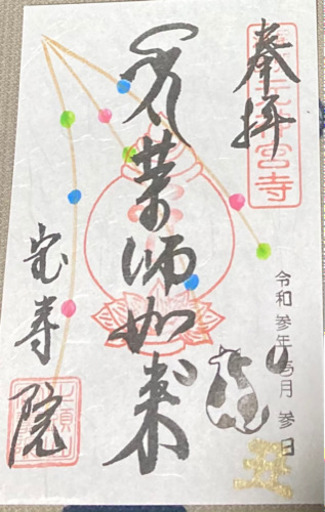 奉拝
元神宮寺
薬師如来
宝寿院
令和参年
月参日